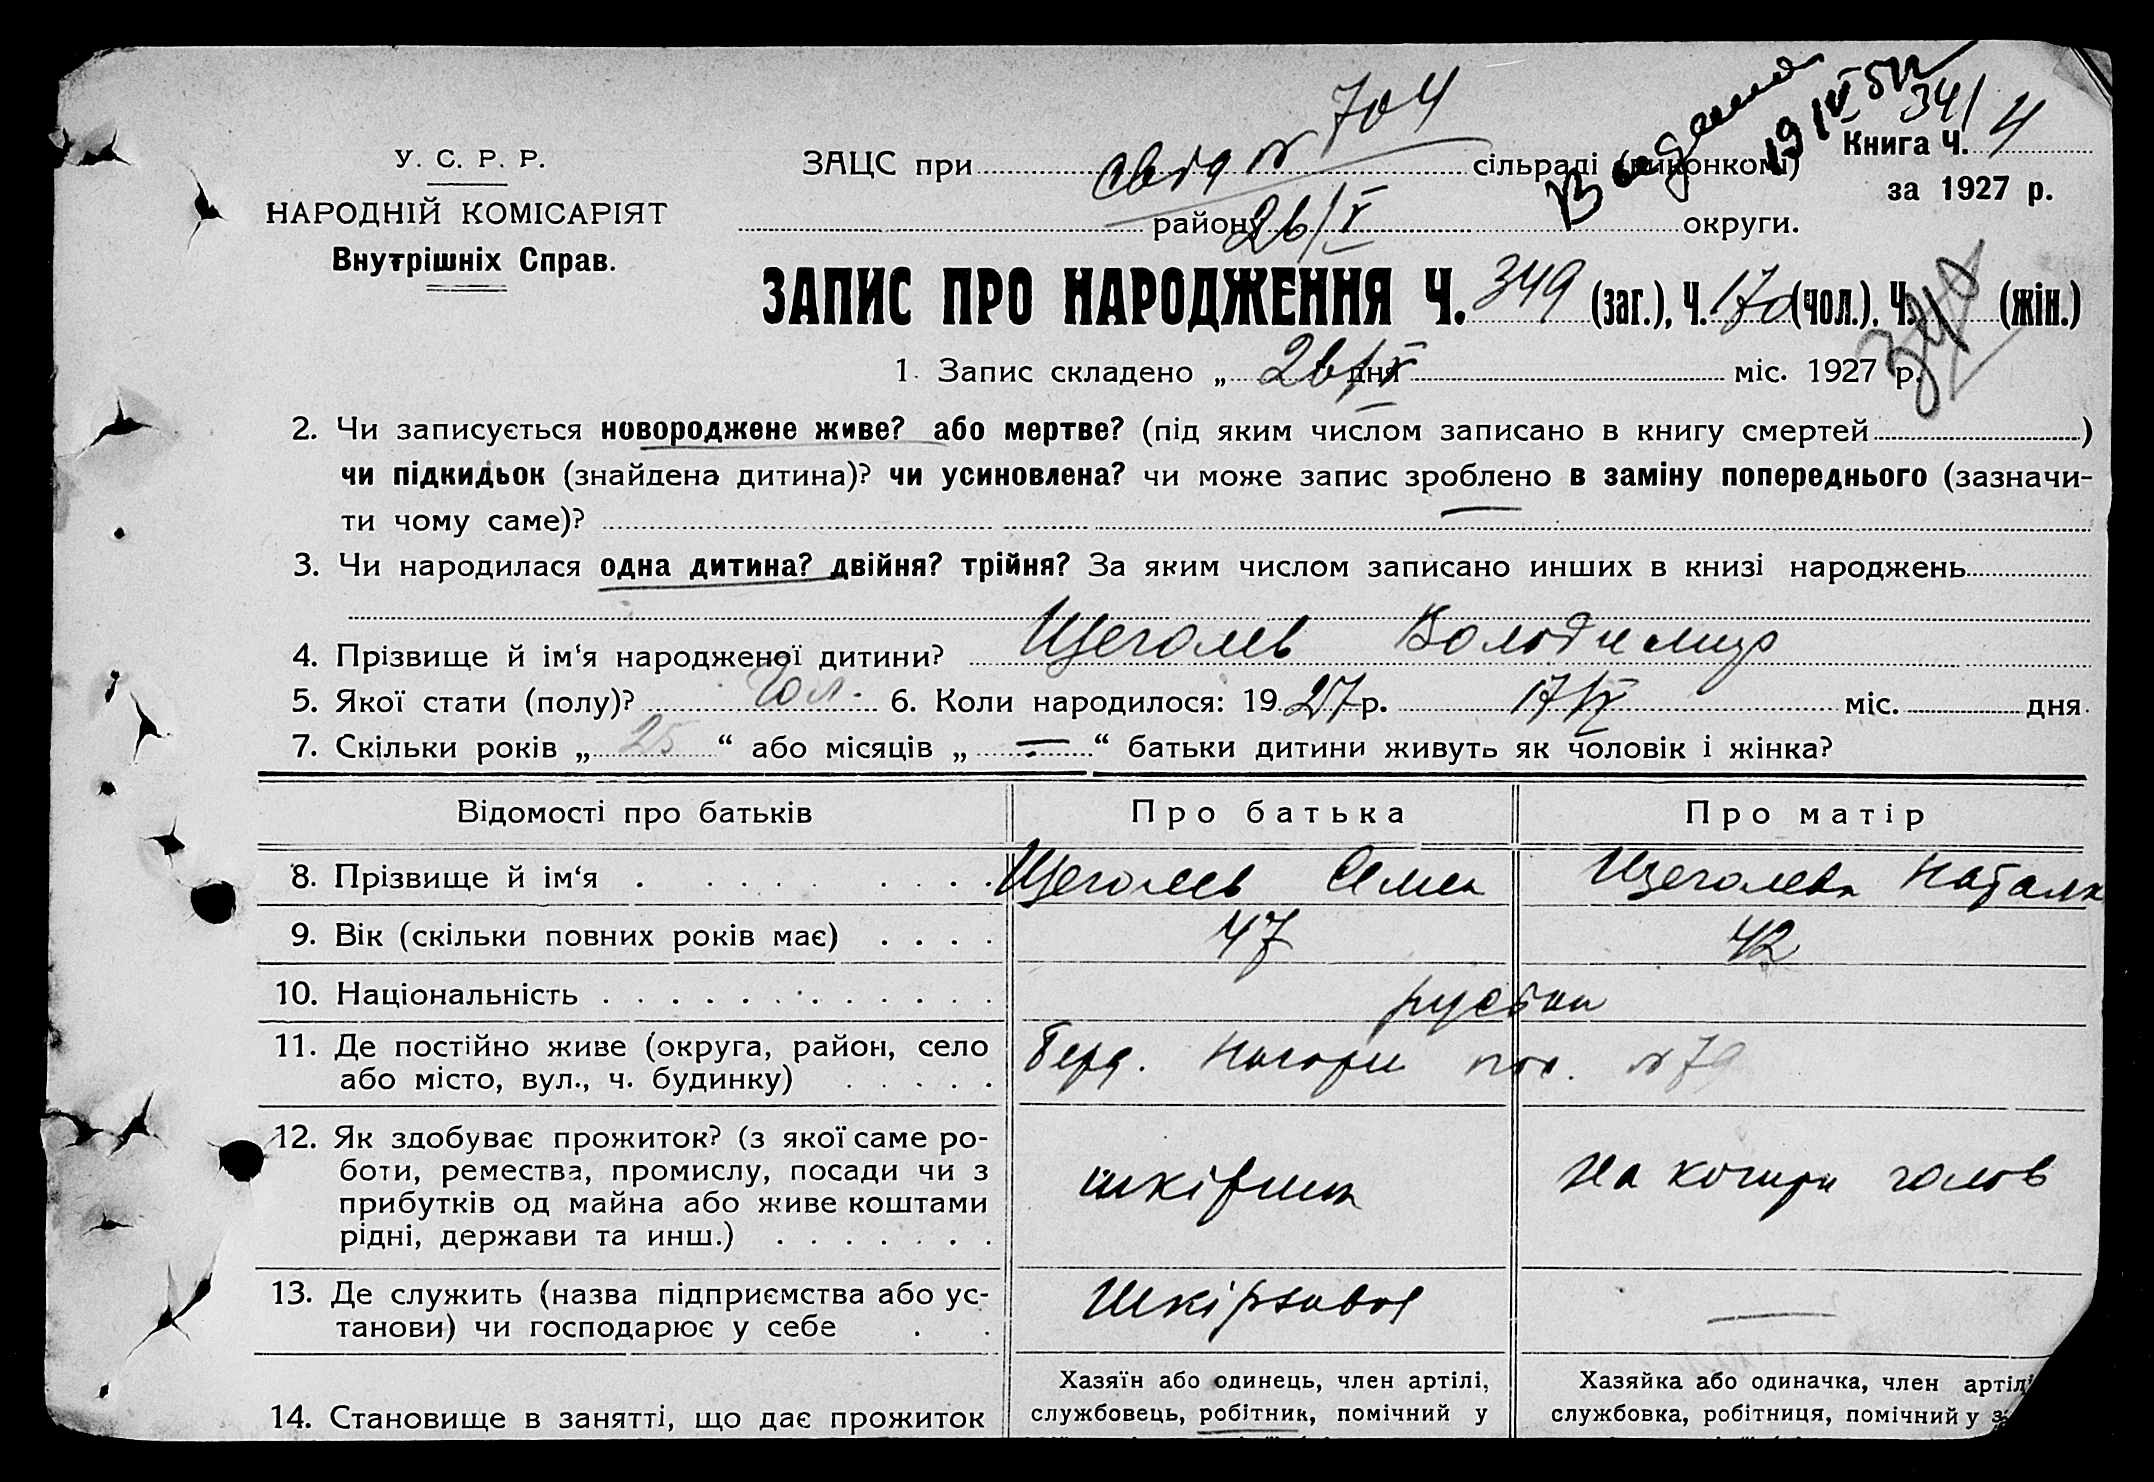 У. С. Р. Р.
НАРОДНІЙ КОМІСАРІЯТ
Внутрішніх Справ.
ЗАЦС при свід N 704 сільраді (виконкомі)
26/V
району округи.
19/IV
341
Книга Ч. 4
за 1927 р.
ЗАПИС ПРО НАРОДЖЕННЯ Ч. 349 (заг.), Ч. 170 (чол.), Ч. (жін.)
340
1. Запис складено „ 26/V дня міс. 1927 р.
2. Чи записується новороджене живе? або мертве? (під яким числом записано в книгу смертей )
чи підкидьок (знайдена дитина)? чи усиновлена? чи може запис зроблено в заміну попереднього (зазначи-
ти чому саме)?
3. Чи народилася одна дитина? двійня? трійня? За яким числом записано инших в книзі народжень
4. Прізвище й ім'я народженої дитини? Щеголев Володимир
5. Якої стати (полу)? Чол. 6. Коли народилося: 1927 р. 17/IV міс. дня
7. Скільки років „ 25 “ або місяців „ — “ батьки дитини живуть як чоловік і жінка?
Відомості про батьків Про батька Про матір
8. Прізвище й ім‘я Щеголев Семен Щеголева Наталя
9. Вік (скільки повних років має) 47 42
10. Національність руські
11. Де постійно живе (округа, район, село
або місто, вул., ч. будинку)
Берд. Нагорн N 79
12. Як здобуває прожиток? (з якої саме ро-
боти, ремества, промислу, посади чи з
прибутків од майна або живе коштами
рідні, держави та инш.)
шкірник
на кошти голов
13. Де служить (назва підприємства або ус-
танови) чи господарює у себе
Шкірзавод —
14. Становище в занятті, що дає прожиток
Хазяїн або одинець, член артілі,
службовець, робітник, помічний у
Хазяйка або одиначка, член артілі
службовка, робітниця, помічний у